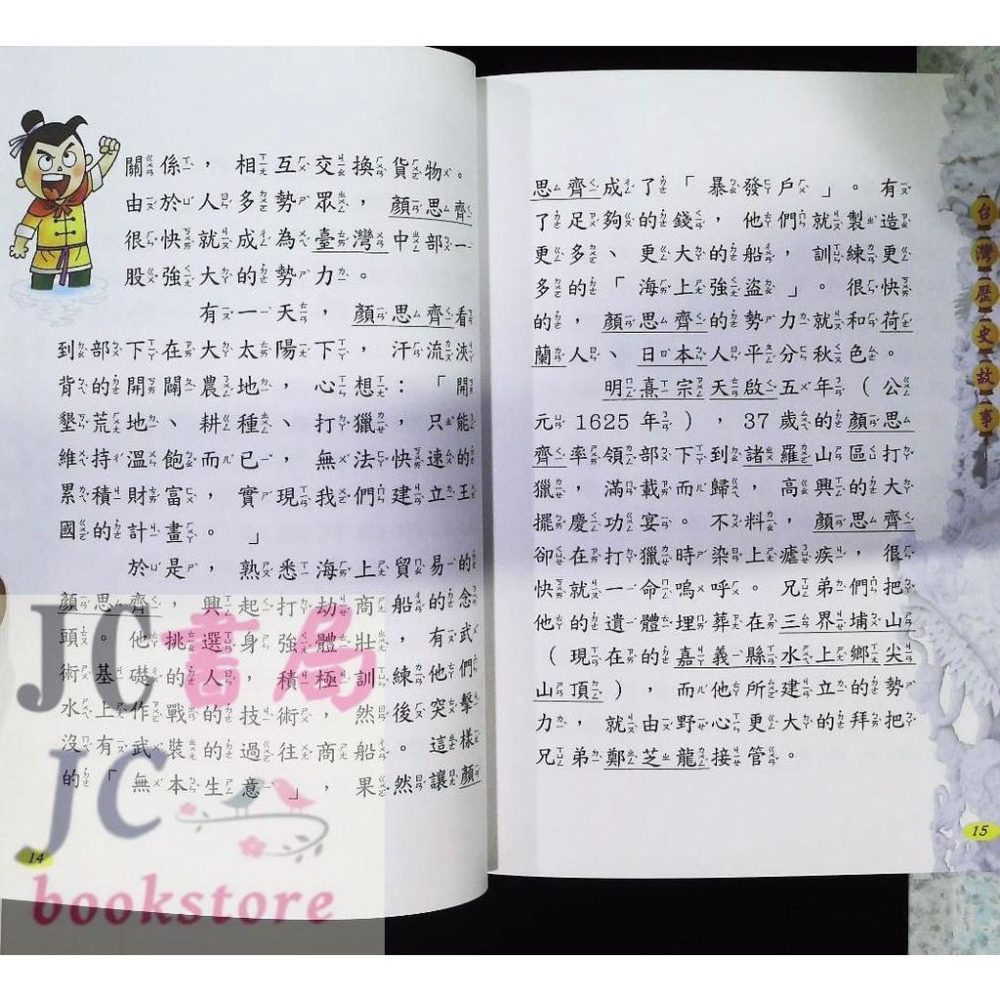 關係，相互交換貨物。
由於人多勢眾，顏思齊
很快就成為臺灣中部一
股強大的勢力。
有一天，顏思齊看
到部下在大太陽下，汗流浹
背的開闢農地，心想：「開
墾荒地、耕種、打獵，只能
維持溫飽而已，無法快速的
累積財富，實現我們建立王
國的計畫。」
於是，熟悉海上貿易的
顏思齊，興起打劫商船的念
頭。他挑選身強體壯，有武
術基礎的人，積極訓練他們
水上作戰的技術，然後突擊
沒有武裝的過往商船。這樣
的「無本生意」，果然讓顏
14
思齊成了「暴發戶」。有
了足夠的錢，他們就製造
更多、更大的船，訓練更
多的「海上強盜」。很快
的，顏思齊的勢力就和荷
蘭人、日本人平分秋色。
明熹宗天啟五年（公
元1625年），37歲的顏思
齊率領部下到諸羅山區打
獵，滿載而歸，高興的大
擺慶功宴。不料，顏思齊
卻在打獵時染上瘧疾，很
快就一命嗚呼。兄弟們把
他的遺體埋葬在三界埔山
（現在的嘉義縣水上鄉尖
山頂），而他所建立的勢
力，就由野心更大的拜把
兄弟鄭芝龍接管。
台灣歷史故事
15
JC書局
JC
bookstore